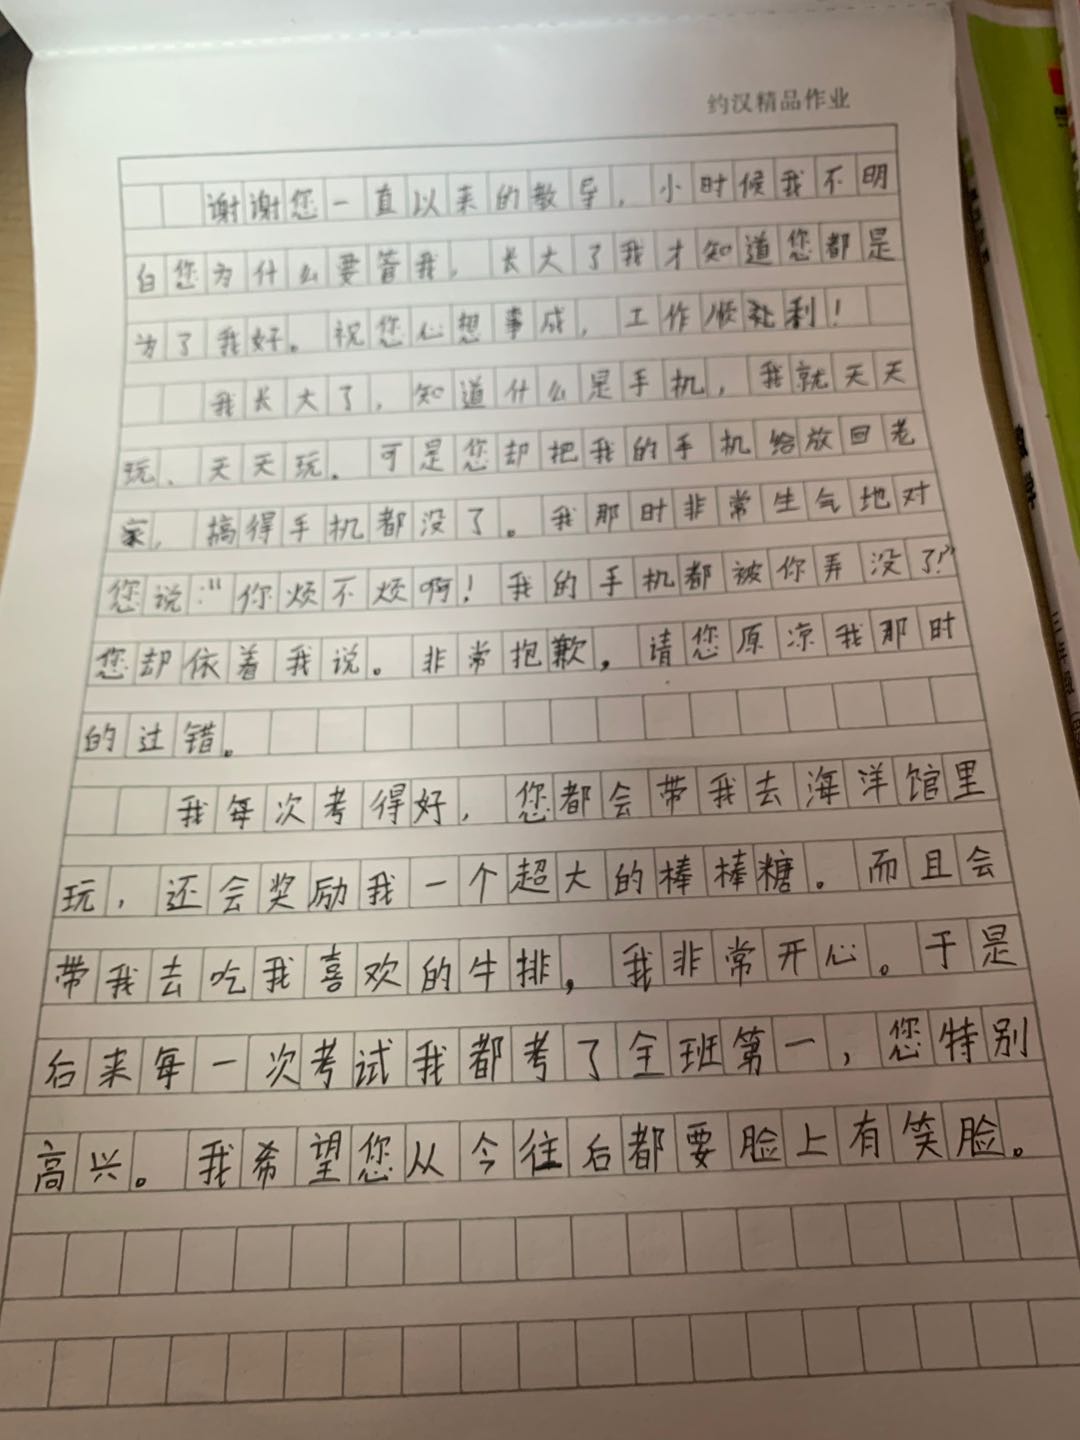 约汉精品作业
谢谢您一直以来的教导，小时候我不明
白您为什么要管我，长大了我才知道您都是
为了我好。祝您心想事成，工作顺利！
我长大了，知道什么是手机，我就天天
玩、天天玩。可是您却把我的手机给放回老
家，搞得手机都没了。我那时非常生气地对
您说：“你烦不烦啊！我的手机都被你弄没了！”
您却依着我说。非常抱歉，请您原凉我那时
的过错。
我每次考得好，您都会带我去海洋馆里
玩，还会奖励我一个超大的棒棒糖。而且会
带我去吃我喜欢的牛排，我非常开心。于是
后来每一次考试我都考了全班第一，您特别
高兴。我希望您从今往后都要脸上有笑脸。